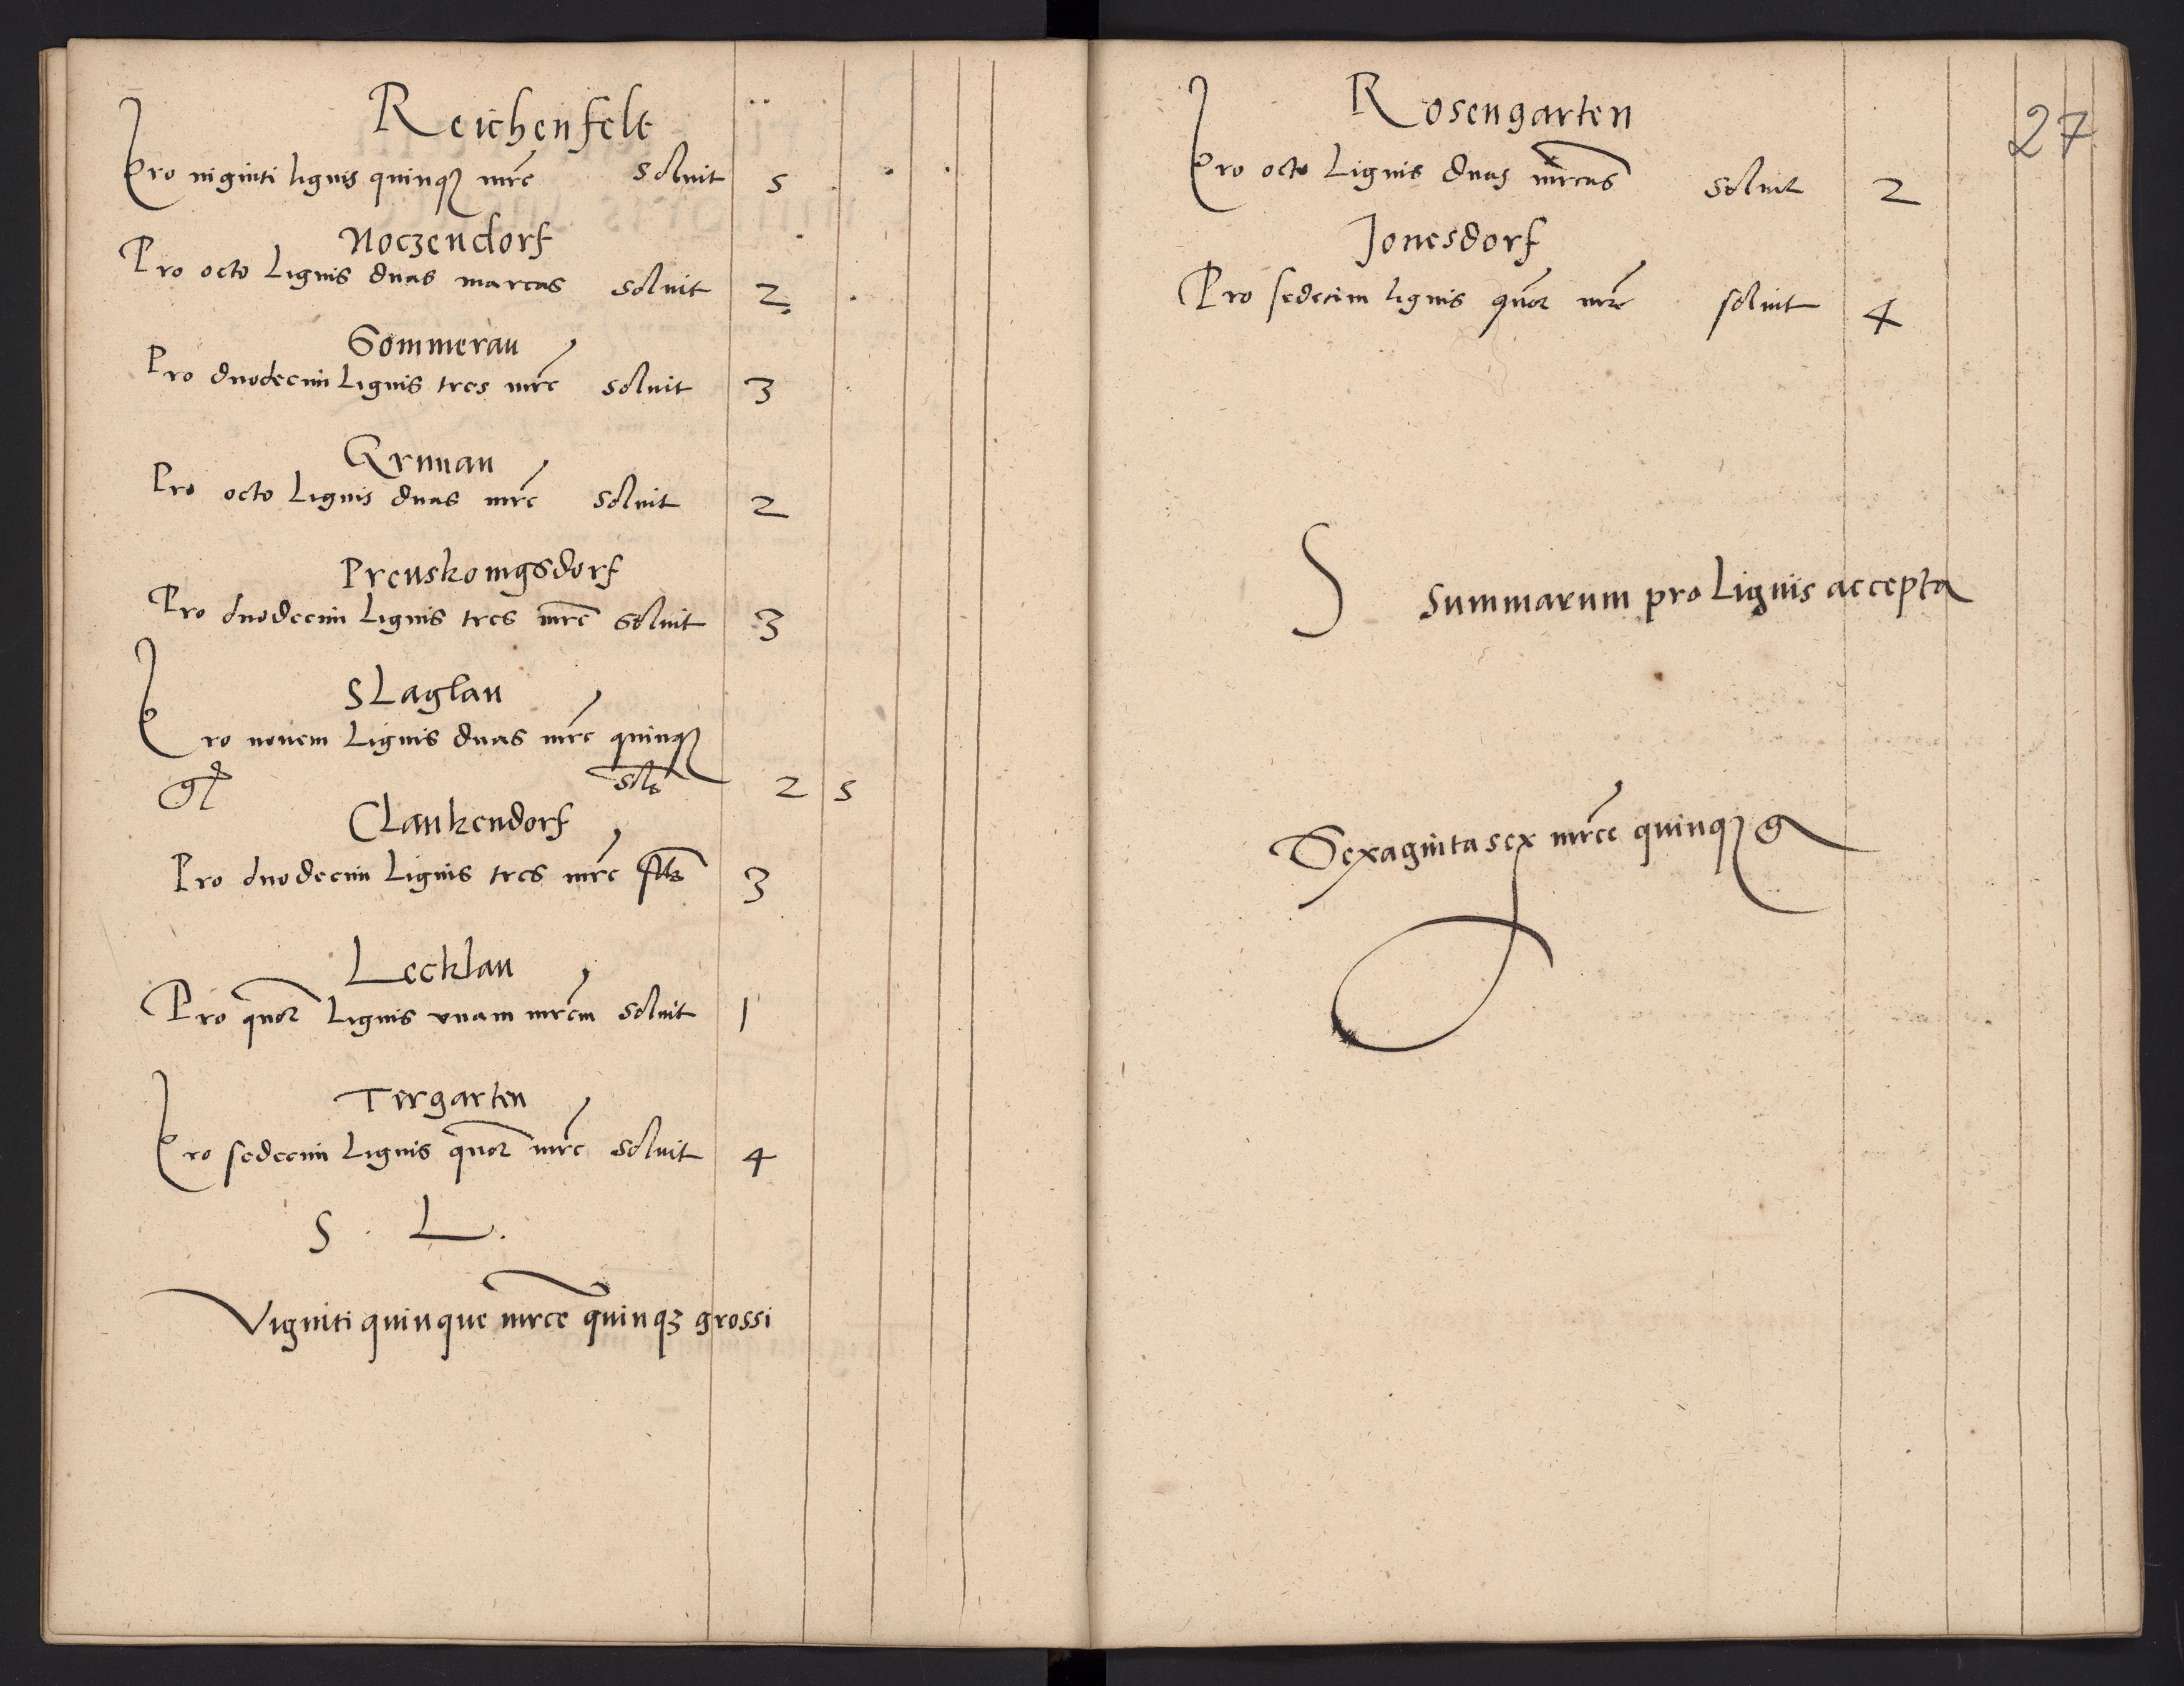 Reichenfelt
Pro viginti lignis quinqꝫ mrc̄ soluit 5
Noczendorf
Pro octo Lignis duas marcas soluit 2
Sommerau
Pro duodecim Lignis tres mrc̄ soluit 3
Grunau
Pro octo Lignis duas mrc̄ soluit 2
Preuskonigsdorf
Pro duodecim Lignis tres mrc̄ soluit 3
SLaglau
Pro nouem Lignis duas mrc̄ quinqꝫ
gl sol̄s 2 5
CLaukendorf
Pro duodecim Lignis tres mrc̄ sol̄s 3
Lecklau
Pro quōr Lignis vnam mrcm̄ soluit 1
Tergarten
Pro sedecim Lignis quōr mrc̄ soluit 4
S . L .
Viginti quinque mrce̅ quinqꝫ grossi
27
Rosengarten
Pro octo Lignis duas mr̄cas soluit 2
Jonesdorf
Pro sedecim lignis quōr mrc̄ soluit 4
S Summarum pro Lignis accepta
Sexaginta sex mrce̅ quinqꝫ g